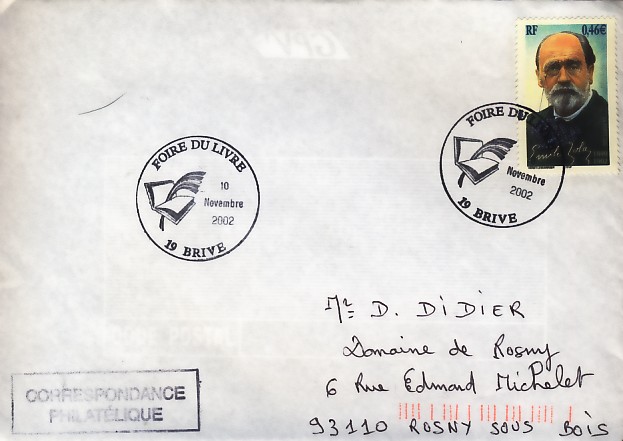 RF 0,46€
Emile Zola
FOIRE DU LIVRE
10
Novembre
2002
19 BRIVE
FOIRE DU
Novembre
2002
19 BRIVE
Mr D. DIDIER
Domaine de Rosny
6 Rue Edmond Michelet
93110 ROSNY SOUS BOIS
CORRESPONDANCE
PHILATÉLIQUE